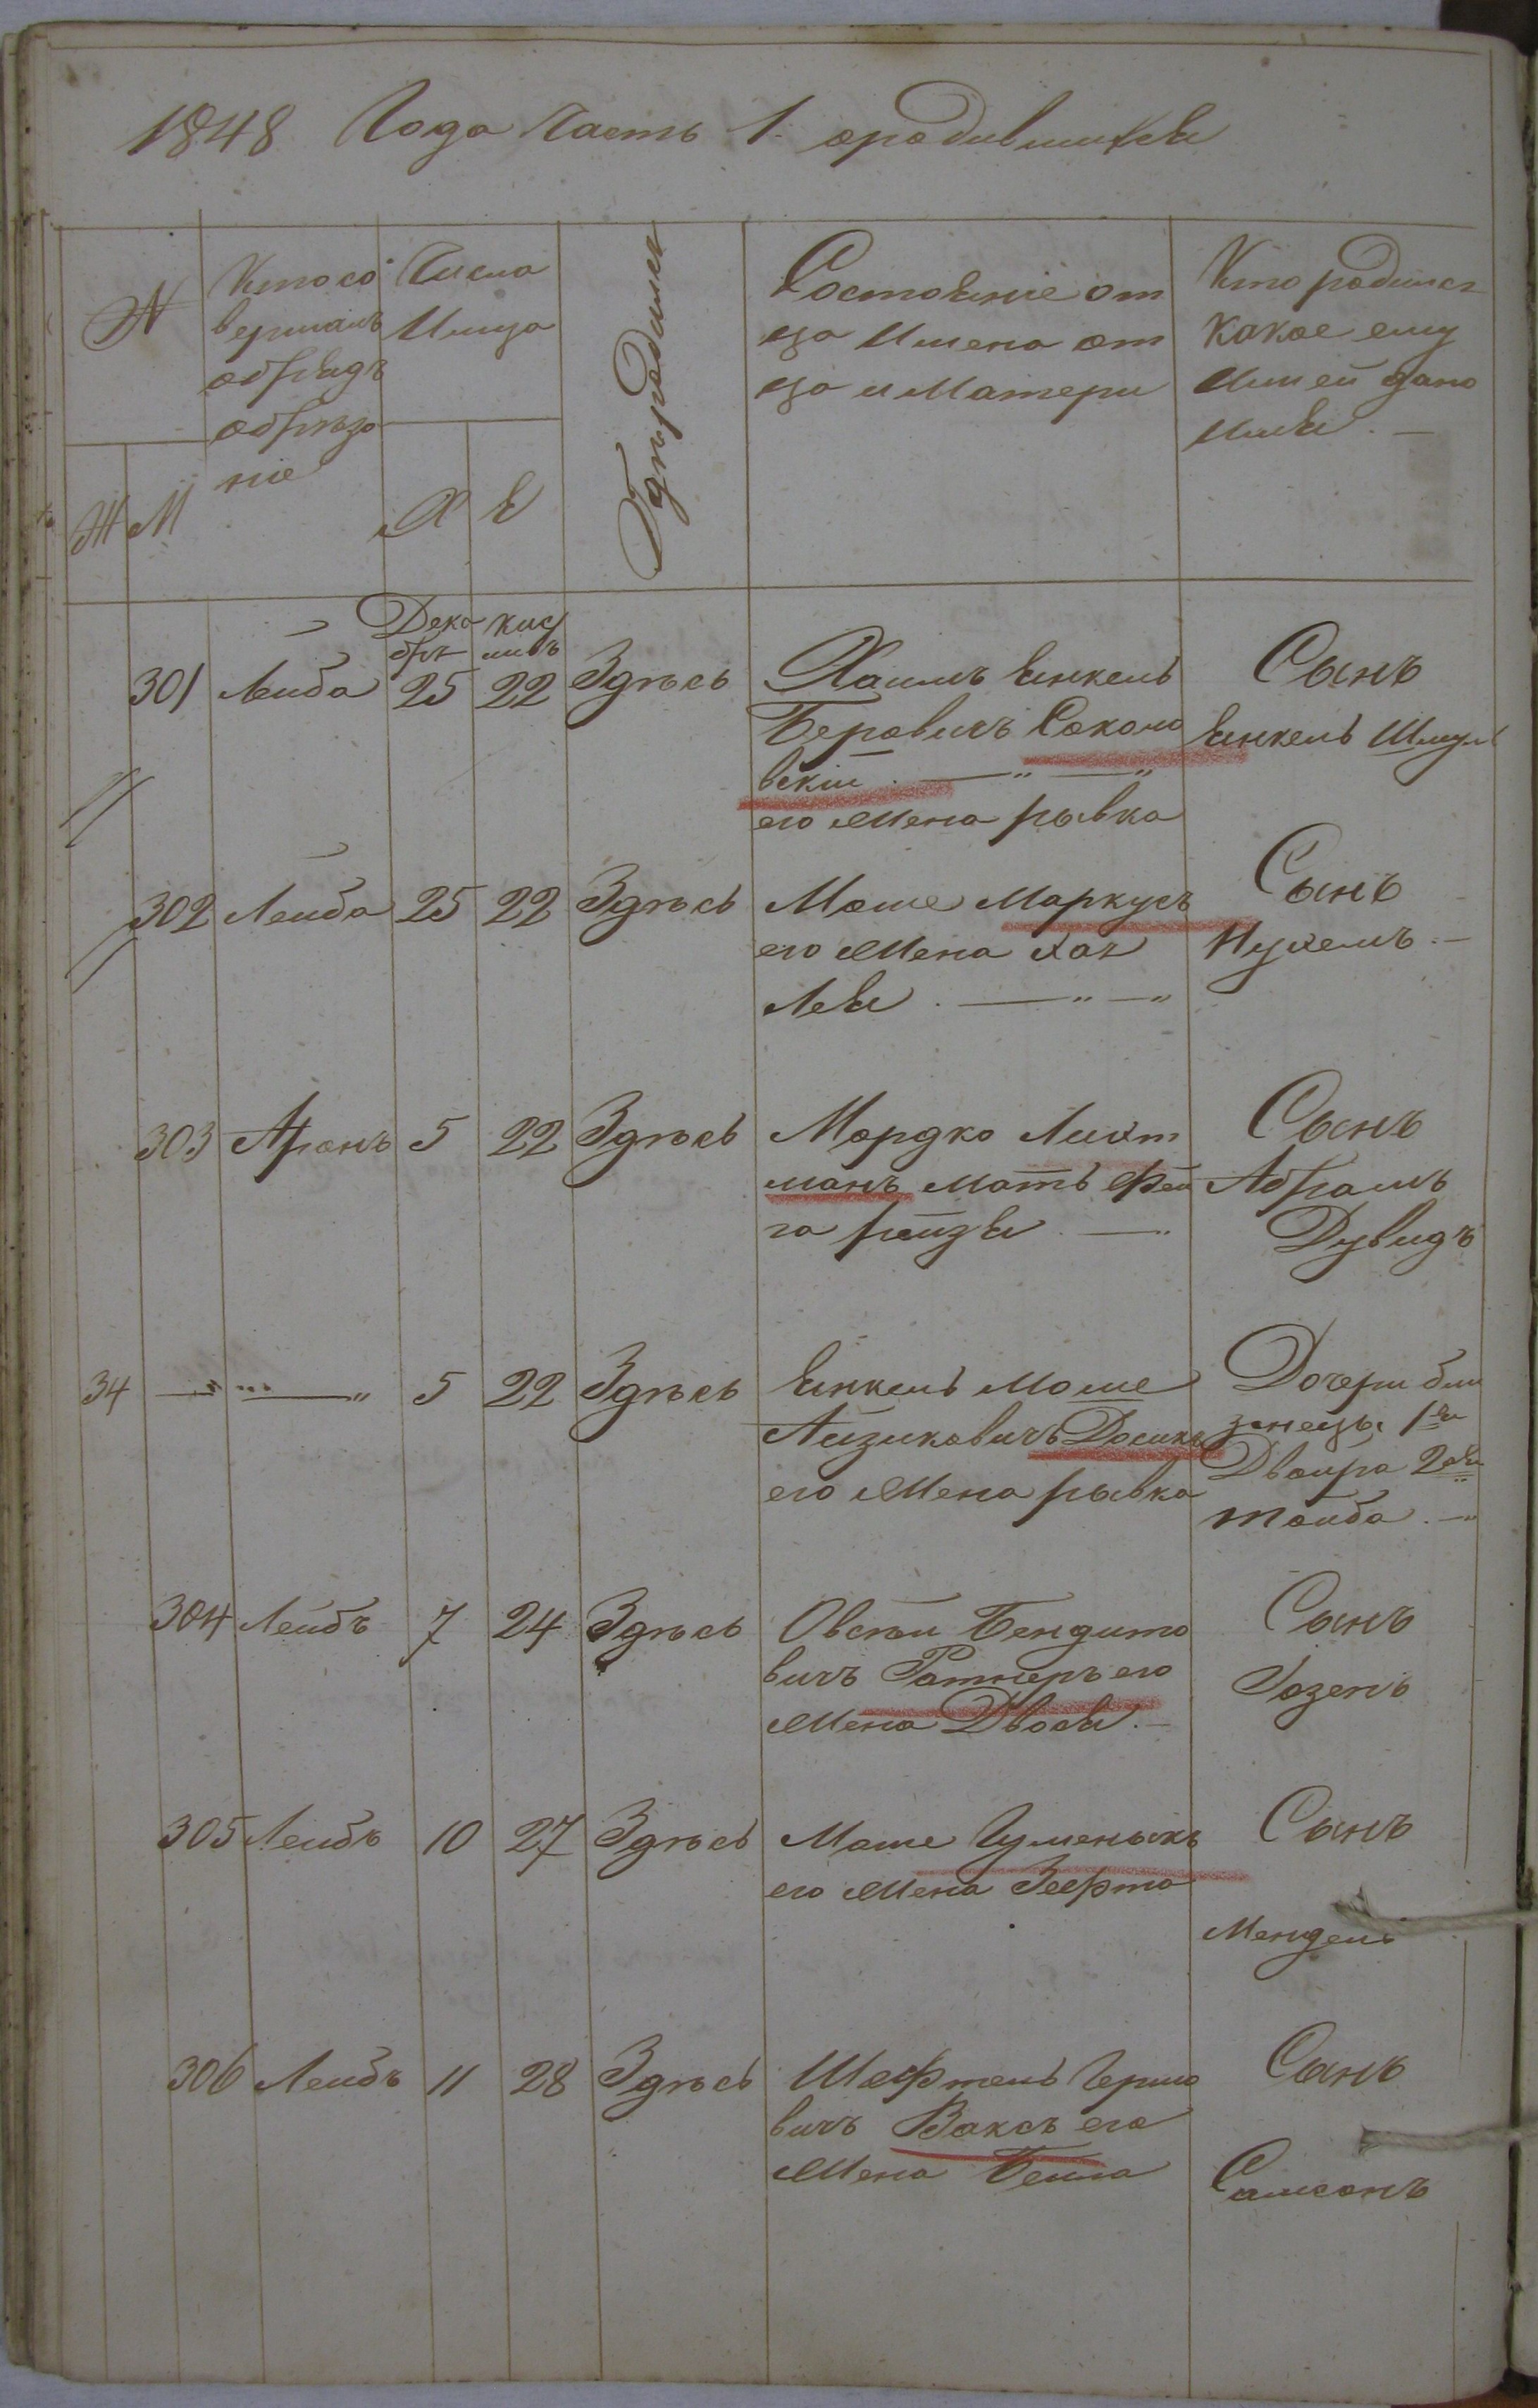 1848 Года Часть 1. ородившихся
№
Кто со
вершалъ
обрядъ
обреза
ніе
Числа
Мица
Гдѣ родился
Состояніе от
ца Имена от
ца и Матери
Кто родился
какое ему
Или ей дано
имя. —
Ж М
Х Е
Дека
брь
кис
ливъ
301 Лейба 25 22 Здѣсь
Хаимъ Янкель
Беровичъ Соколо
вскій. — " — "
его Жена рывка
Сынъ
Янкель Шмуль
302 Лейба 25 22 Здѣсь
Моше Маркусъ
его Жена хая
Лея. — " — "
Сынъ
Нухемъ. —
303 Аронъ 5 22 Здѣсь
Мордко Лихт
манъ мать Фей
га рейзя. — "
Сынъ
Абрамъ
Дувидъ
34 — " — " 5 22 Здѣсь
Янкель Моше
Айзиковичъ
его Жена рывка
Дочери бли
знецы 1я
Двойра 2ая
тойба. — "
304 Лейбъ 7 24 Здѣсь
Овсей Бендито
вичъ Ратнеръ его
Жена Двося. —
Сынъ
Іозепъ
305 Лейбъ 10 27 Здѣсь
Моше Гуменыкъ
его Жена
Сынъ
Мендель
306 Лейбъ 11 28 Здѣсь
Шефтель Гершо
вичъ Ваксъ его
Жена Бейла
Сынъ
Самсонъ